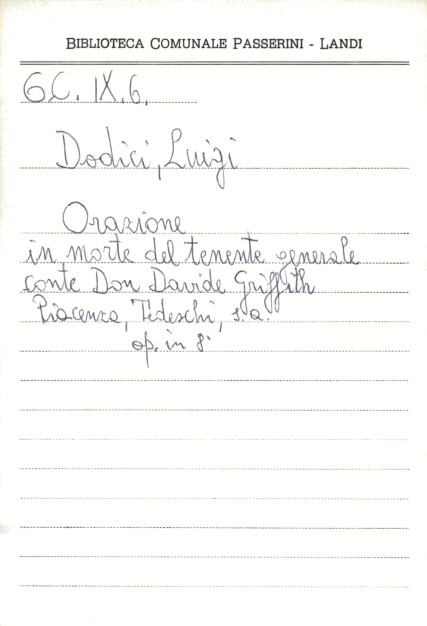 BIBLIOTECA COMUNALE PASSERINI - LANDI
6C. IX. 6.
Dodici, Luigi
Orazione
in morte del tenente generale
conte Don Davide Griffith
Piacenza, Tedeschi, s.a.
op. in 8°